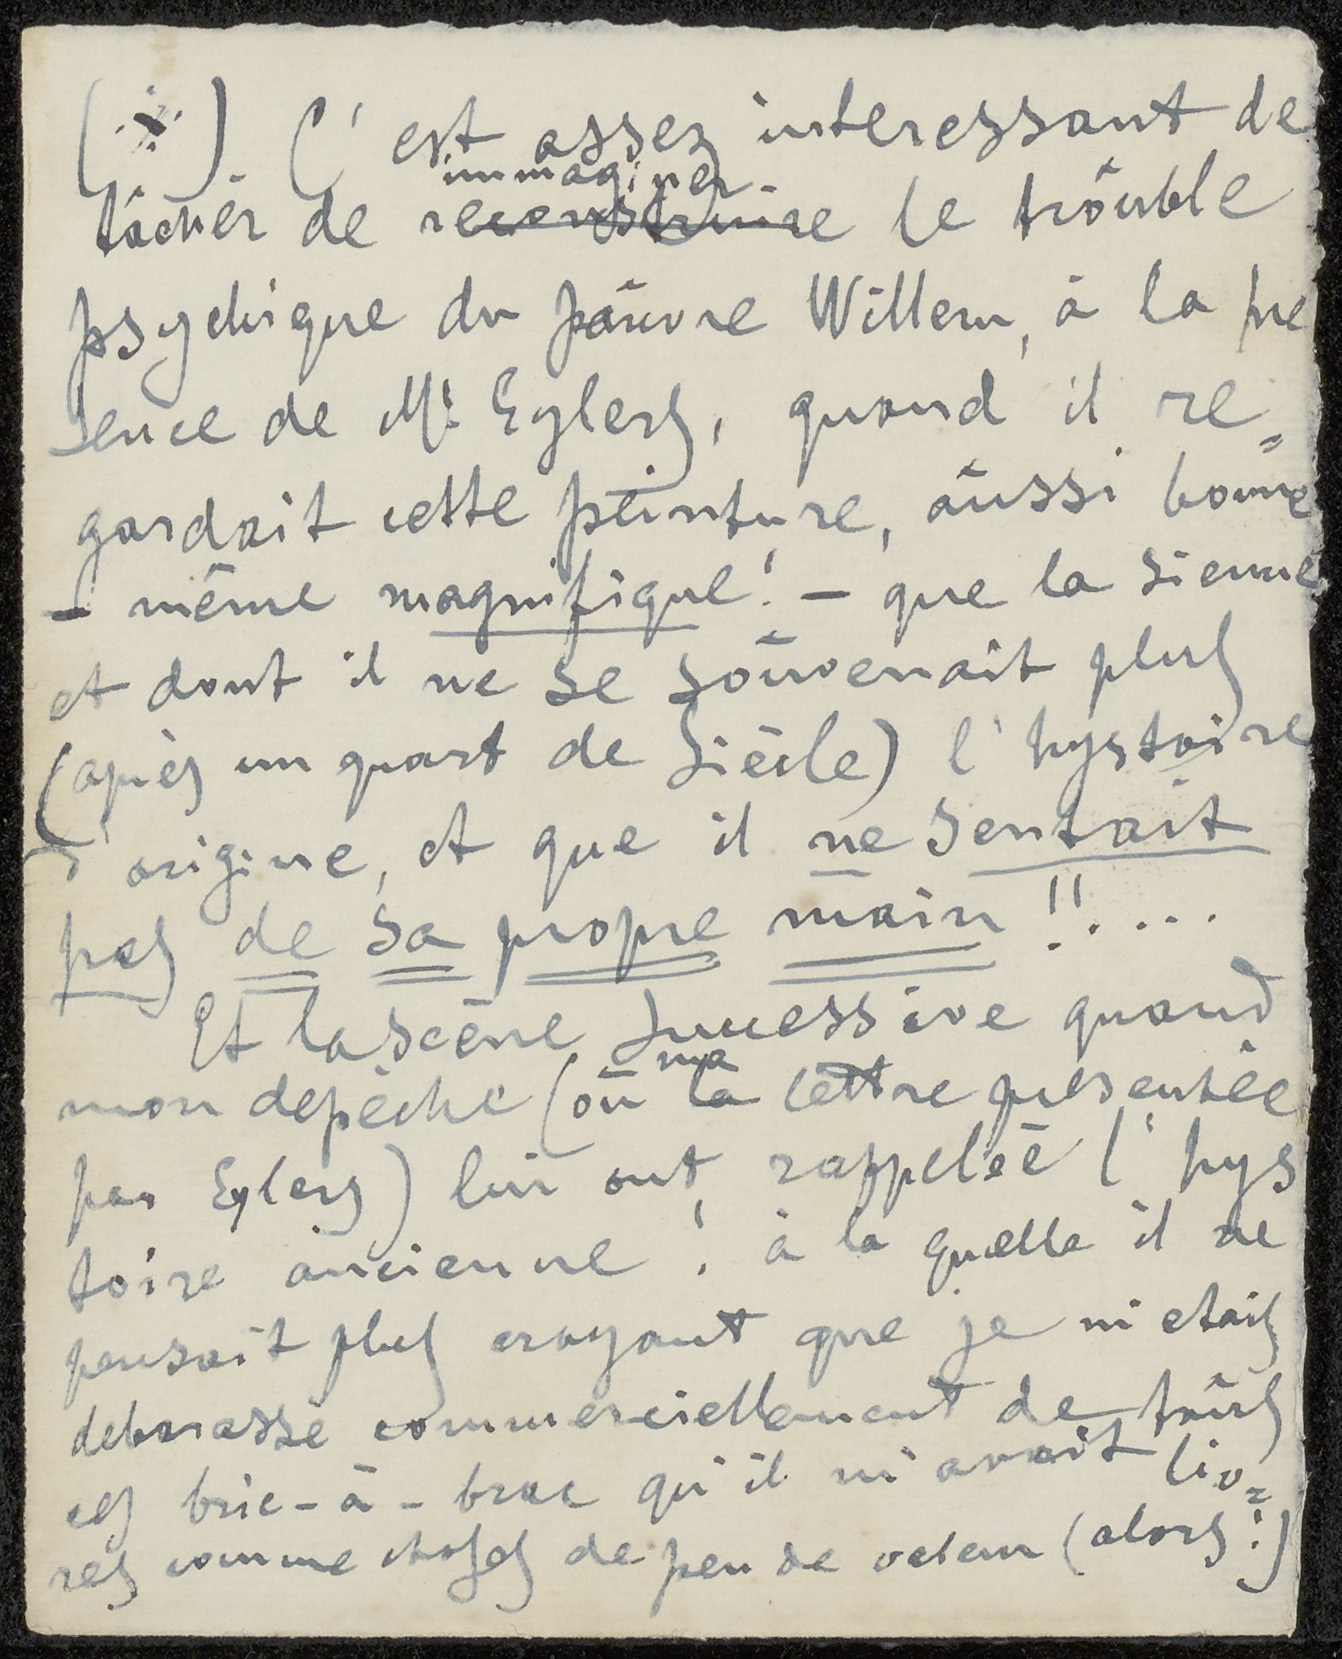 (·x·). C'est assez interessant de
immaginer
tâcher de reconstruire le trouble
psychique du pauvre Willem, à la pre
sence de Mr. Eylers, quand il re=
gardait cette peinture, aussi bonne
- même magnifique! - que la sienne
et dont il ne se souvenait plus
(après un quart de siècle) l'hystoire
d'origine, et que il ne sentait
pas de sa propre main!!....
Et la scène successive quand
ma
mon depêche (ou la lettre presentée
par Eylers) lui ont rappelèe l'hys
toire ancienne! à la quelle il ne
pensait plus croyant que je m'etais
debarassé commerciellement de tous
ces bric-à-brac qu'il m'avait liv=
res comme choses de peu de valeur (alors!)